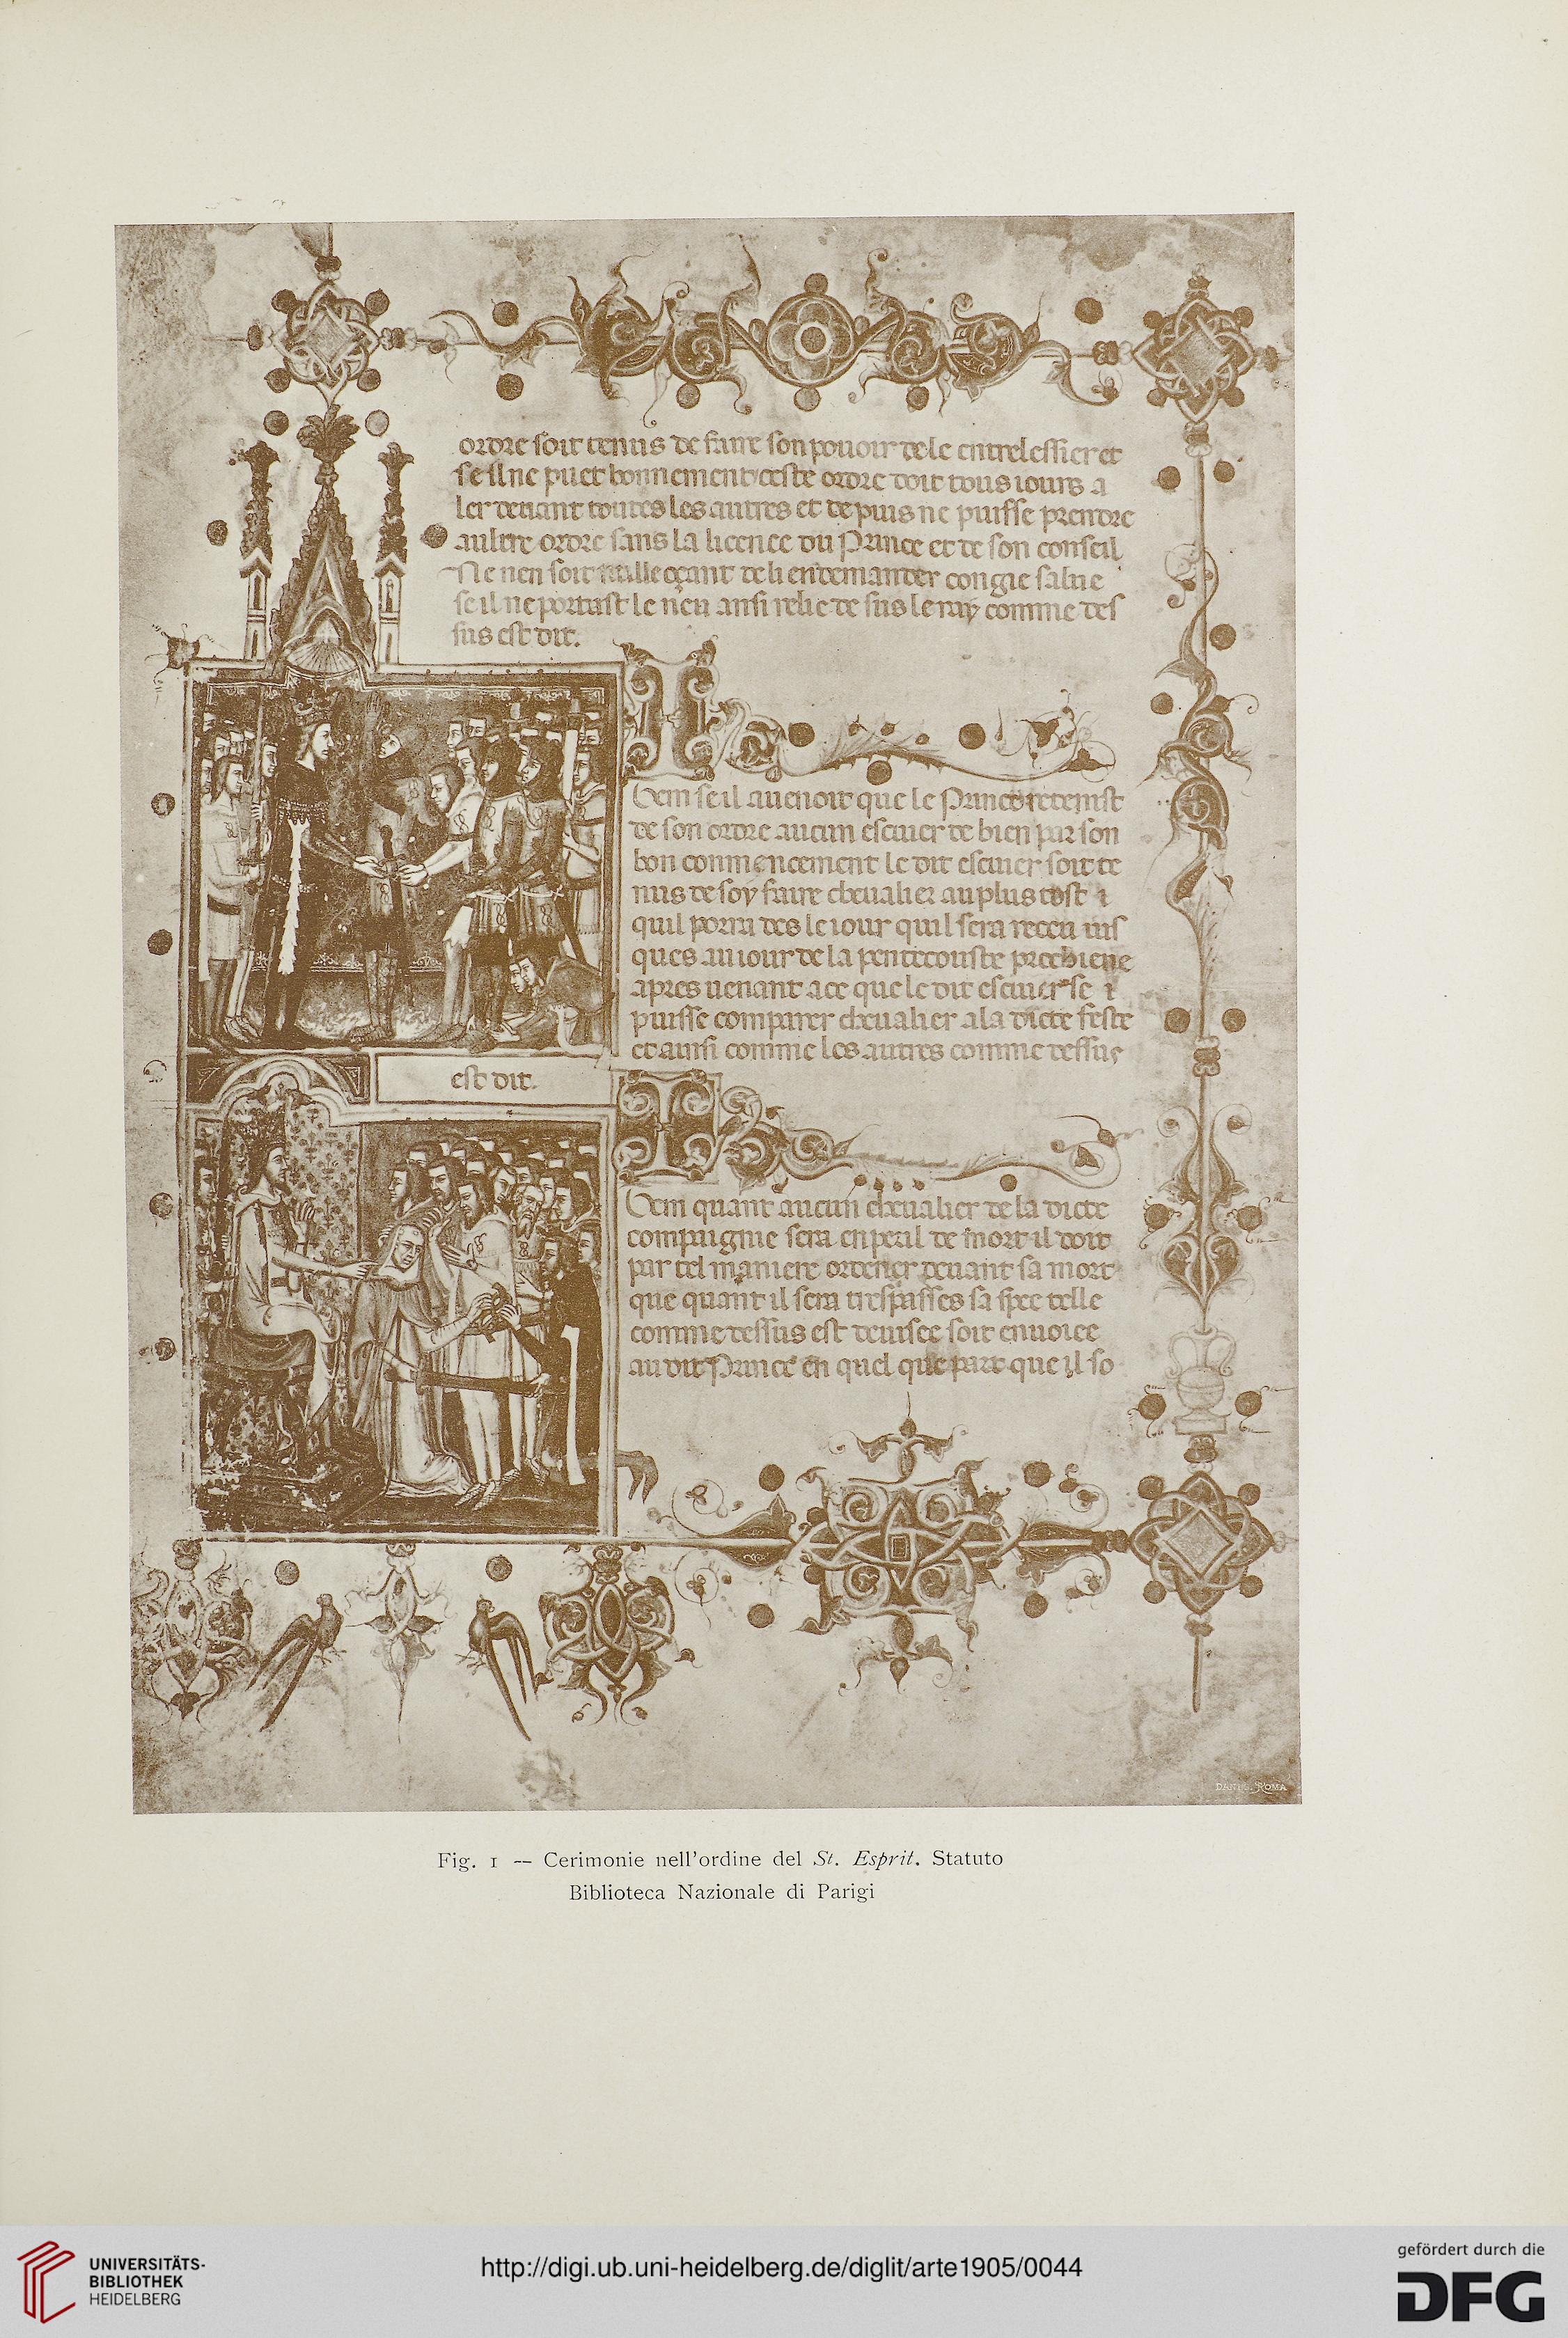 ordre soit tenus de faire son pouoir de le entrelessier et
se il ne puet bonnement ceste ordre doit tous iours a
ler deuant toutes les autres et depuis ne puisse prendre
aultre ordre sans la licence du Prince et de son conseil
Ne nen soit de li en demander congie salue
se il ne portast le neu ansi relie de sus le ray comme des
sus est dit.
Item se il auenoit que le Prince retenist
de son ordre aucun escuier de bien par son
bon commencement le dit escuier soit te
nus de soy faire cheualier au plus tost
quil porra des le iour quil sera receu ius
ques au iour de la pentecouste prochiene
apres uenant a ce que le dit escuier se
puisse comparer cheualier a la dicte feste
et aussi comme les autres comme dessus
est dit.
Item quant aucun cheualier de la dicte
compaignie sera en peril de mort il doit
par tel maniere ordener deuant sa mort
que quant il sera trespasses sa spee telle
comme dessus est deuisee soit enuoiee
au dit Prince en quel que part que il so
DANESI. ROMA
Fig. 1 — Cerimonie nell'ordine del St. Esprit. Statuto
Biblioteca Nazionale di Parigi
UNIVERSITÄTS-
BIBLIOTHEK
HEIDELBERG
http://digi.ub.uni-heidelberg.de/diglit/arte1905/0044
gefördert durch die
DFG